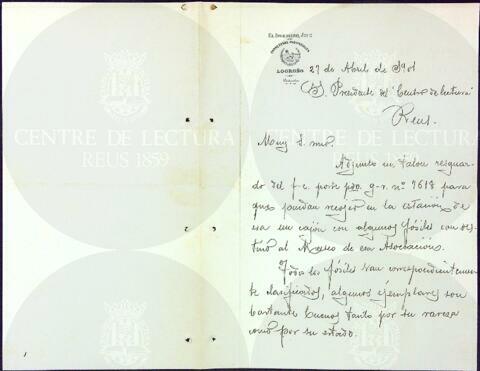 El Ingeniero Jefe
LOGROÑO
27 de Abril de 1901
S. Presidente del "Centro de lectura"
Reus.
CENTRE DE LECTURA
REUS 1859
Muy S. mio:
Adjunto un talon resguar-
do del f-c. porte pgo. g.v. nº 7618 para
que puedan recojer en la estación de
esa un cajón con algunos fósiles con des-
tino al Museo de esa Asociación.
Todos los fósiles van correspondientemen-
te clasificados, algunos ejemplares son
bastante buenos tanto por su rareza
como por su estado.